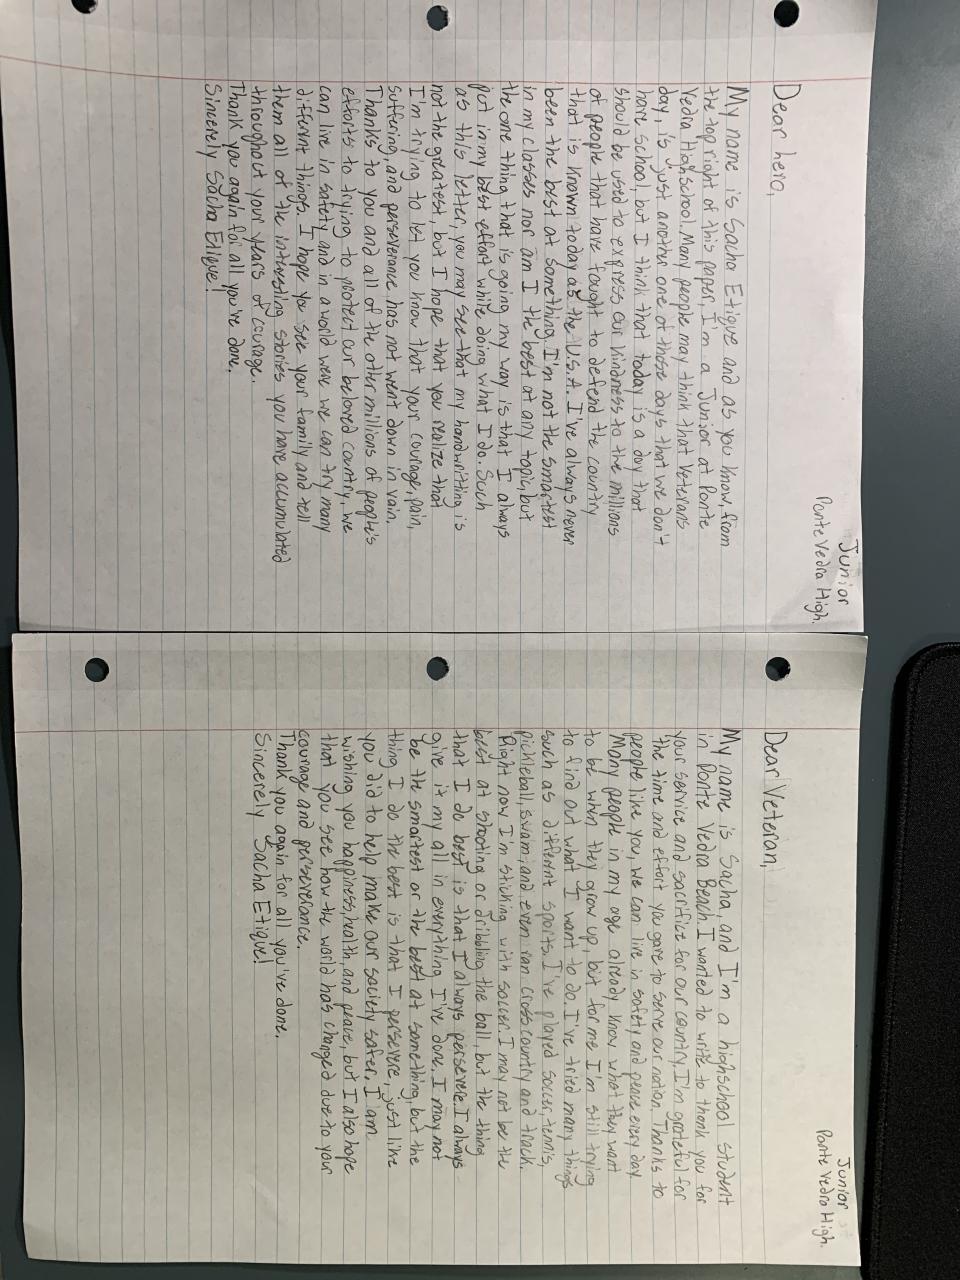 Junior
Ponte Vedra High.
Dear hero,
My name is Sacha Etique and as you know, from
the top right of this paper, I'm a Junior at Ponte
Vedra Highschool. Many people may think that Veterans
day, is just another one of those days that we don't
have school, but I think that today is a day that
should be used to express our kindness to the millions
of people that have fought to defend the country
that is known today as the U.S.A. I've always never
been the best at something. I'm not the smartest
in my classes nor am I the best at any topic, but
the one thing that is going my way is that I always
put in my best effort while doing what I do. Such
as this letter, you may see that my handwritting is
not the greatest, but I hope that you realize that
I'm trying to let you know that your courage, pain,
suffering, and perseverance has not went down in vain.
Thanks to you and all of the other millions of people's
efforts to trying to protect our beloved country, we
can live in safety, and in a world were we can try many
different things. I hope you see your family and tell
them all of the intresting stories you have accumulated
throughout your years of courage.
Thank you again for all you've done.
Sincerely Sacha Etique!
Junior
Ponte Vedra High.
Dear Veteran,
My name is Sacha, and I'm a highschool student
in Ponte Vedra Beach. I wanted to write to thank you for
your service and sacrifice for our country. I'm grateful for
the time and effort you gave to serve our nation. Thanks to
people like you, we can live in safety and peace every day.
Many people in my age already know what they want
to be when they grow up, but for me I'm still trying
to find out what I want to do. I've tried many things
such as different sports. I've played soccer, tennis,
pickleball, swam, and even ran cross country and track.
Right now I'm sticking with soccer. I may not be the
best at shooting or dribbling the ball, but the thing
that I do best is that I always persevere. I always
give it my all in everything I've done. I may not
be the smartest or the best at something, but the
thing I do the best is that I persevere, just like
you did to help make our society safer, I am
wishing you happiness, health, and peace, but I also hope
that you see how the world has changed due to your
courage and perseverance.
Thank you again for all you've done.
Sincerely Sacha Etique!